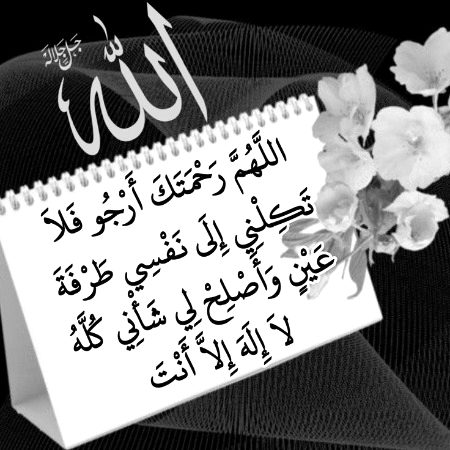 الله
جَلَّ جَلَالُه
اللَّهُمَّ رَحْمَتَكَ أَرْجُو فَلَا
تَكِلْنِي إِلَى نَفْسِي طَرْفَةَ
عَيْنٍ وَأَصْلِحْ لِي شَأْنِي كُلَّهُ
لَا إِلَهَ إِلَّا أَنْتَ